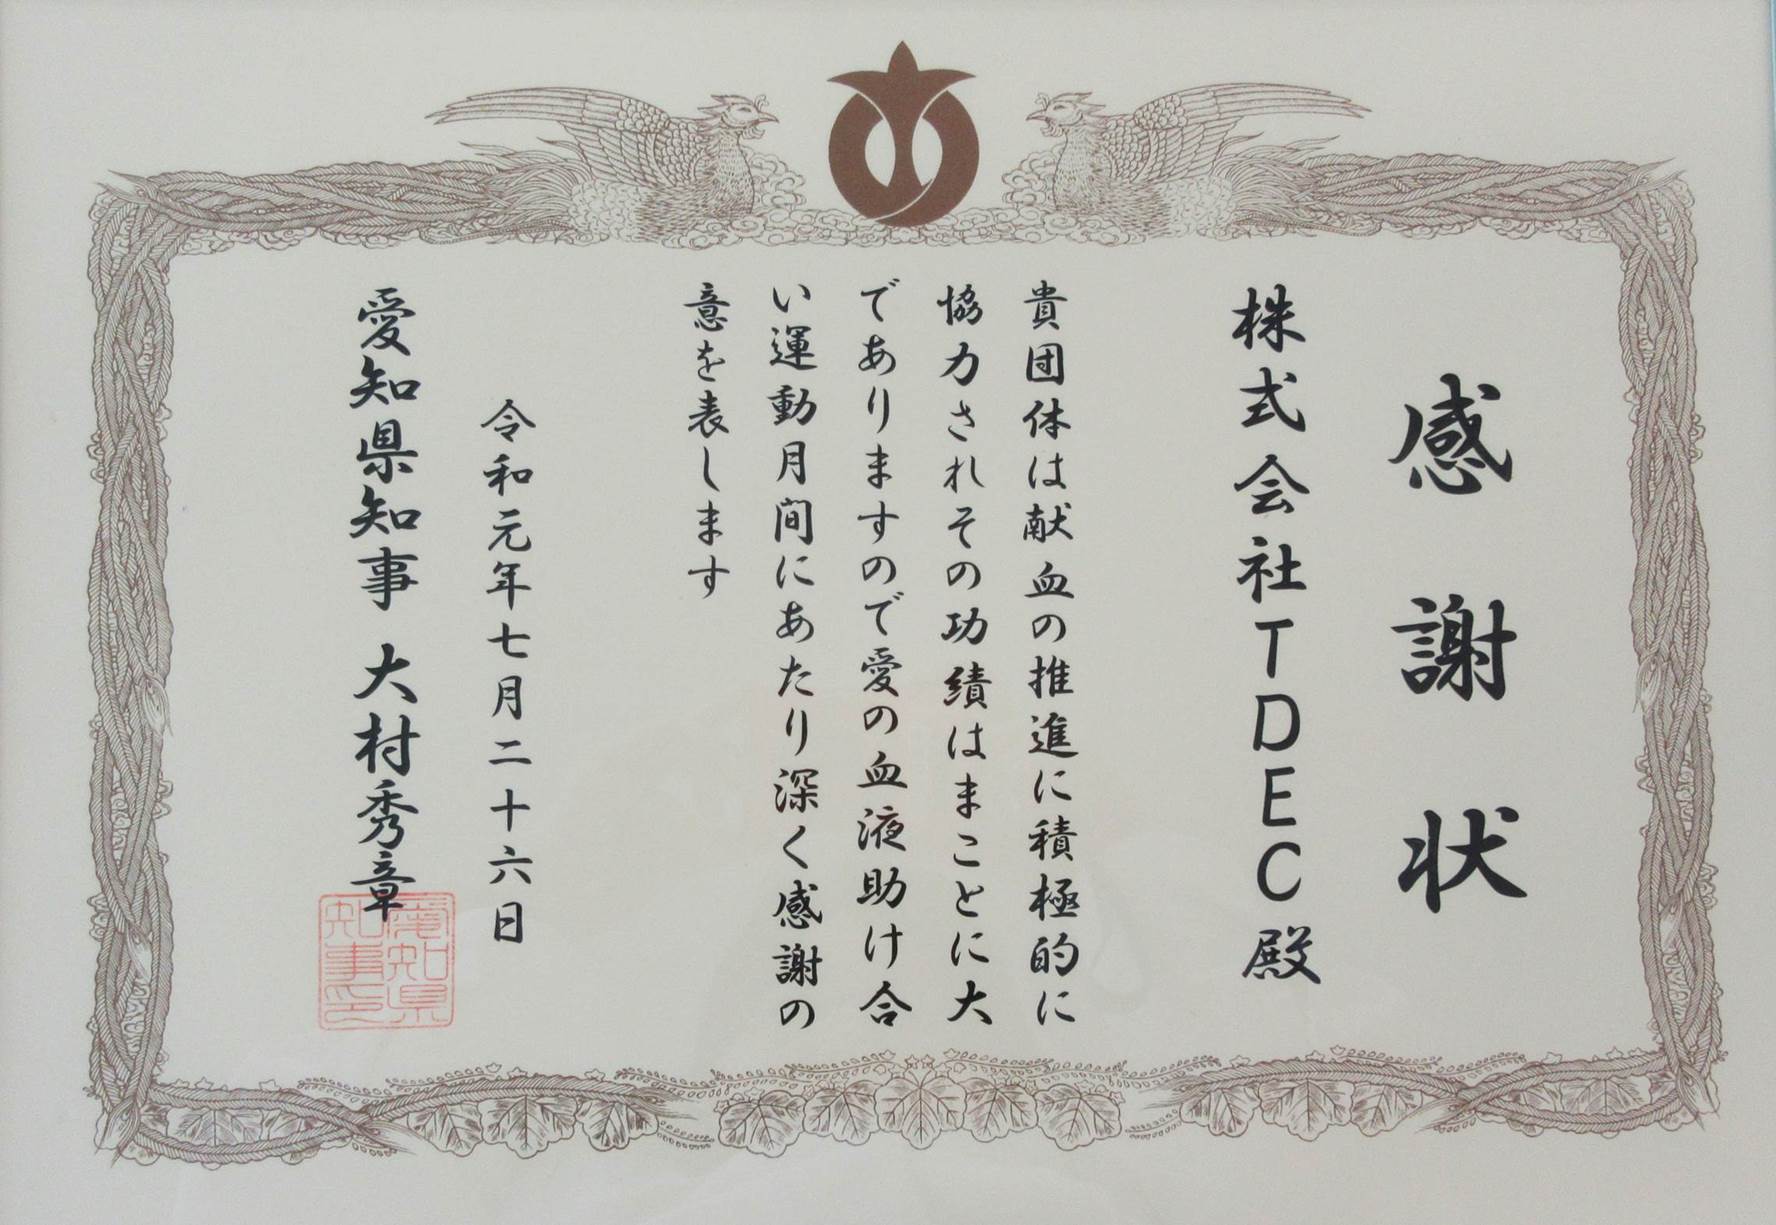 感謝状
株式会社TDEC殿
貴団体は献血の推進に積極的に
協力されその功績はまことに大
でありますので愛の血液助け合
い運動月間にあたり深く感謝の
意を表します
令和元年七月二十六日
愛知県知事 大村秀章
愛知県
知事印